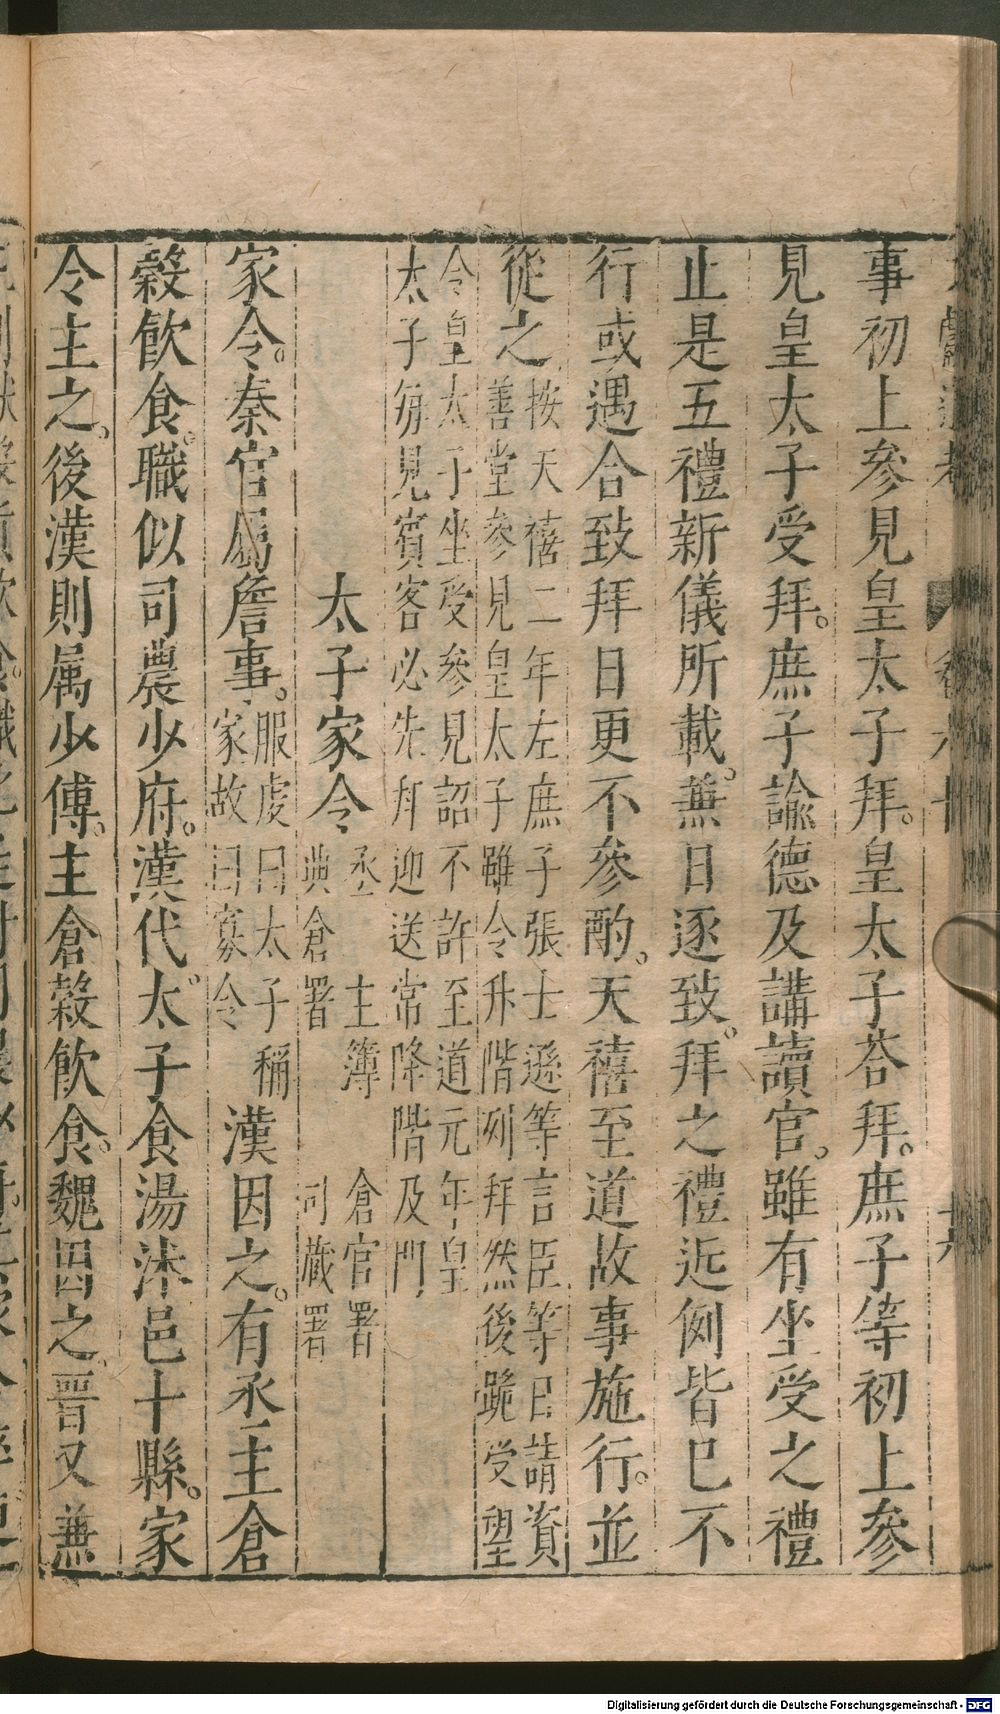 事初上參見皇太子拜。皇太子荅拜。庶子等初上參
見皇太子受拜。庶子諭德及講讀官。雖有坐受之禮
止是五禮新儀所載。無日逐致。拜之禮近例皆已不
行或遇合致拜日更不參酌。天禧至道故事施行。並
從之
按天禧二年左庶子張士遜等言臣等日請資
善堂參見皇太子雖令升階列拜然後跪受望
令皇太子坐受參見詔不許至道元年皇
太子每見賓客必先拜迎送常降階及門
太子家令
丞　主簿　倉官署
典倉署　司藏署
家令。秦官屬詹事。
服虔曰太子稱
家故曰寡令
漢因之。有丞主倉
穀飲食。職似司農少府。漢代太子食湯沐邑十縣。家
令主之。後漢則属少傅。主倉穀飲食。魏因之晉又兼
Digitalisierung gefördert durch die Deutsche Forschungsgemeinschaft - DFG